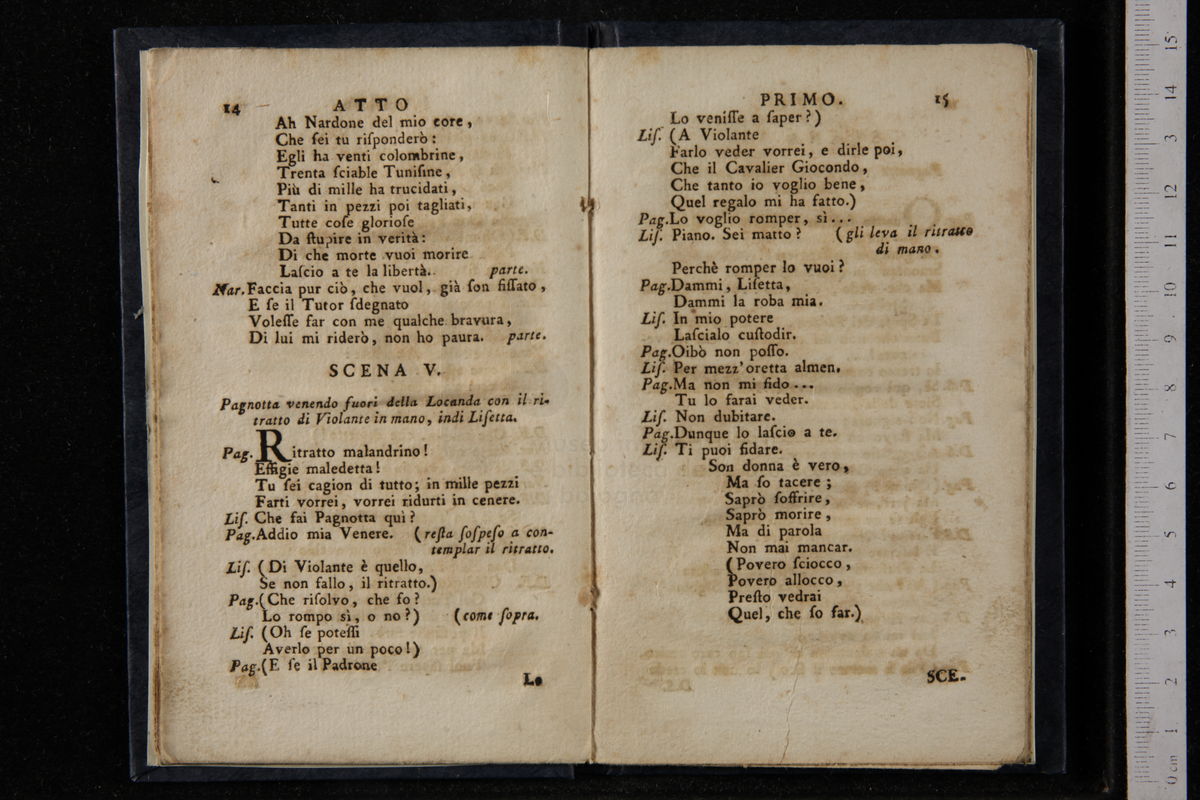 14 ATTO
Ah Nardone del mio core,
Che ſei tu riſponderò:
Egli ha venti colombrine,
Trenta ſciable Tuniſine,
Più di mille ha trucidati,
Tanti in pezzi poi tagliati,
Tutte coſe glorioſe
Da ſtupire in verità:
Di che morte vuoi morire
Laſcio a te la libertà. parte.
Nar. Faccia pur ciò, che vuol, già ſon fiſſato,
E ſe il Tutor ſdegnato
Voleſſe far con me qualche bravura,
Di lui mi riderò, non ho paura. parte.
SCENA V.
Pagnotta venendo fuori della Locanda con il ri-
tratto di Violante in mano, indi Liſetta.
Pag. Ritratto malandrino!
Effigie maledetta!
Tu ſei cagion di tutto; in mille pezzi
Farti vorrei, vorrei ridurti in cenere.
Liſ. Che fai Pagnotta quì?
Pag. Addio mia Venere. (reſta ſoſpeſo a con-
templar il ritratto.
Liſ. (Di Violante è quello,
Se non fallo, il ritratto.)
Pag. (Che riſolvo, che fo?
Lo rompo sì, o no?) (come ſopra.
Liſ. (Oh ſe poteſſi
Averlo per un poco!)
Pag. (E ſe il Padrone
Lo
PRIMO. 15
Lo veniſſe a ſaper?)
Liſ. (A Violante
Farlo veder vorrei, e dirle poi,
Che il Cavalier Giocondo,
Che tanto io voglio bene,
Quel regalo mi ha fatto.)
Pag. Lo voglio romper, sì...
Liſ. Piano. Sei matto? (gli leva il ritratto
di mano.
Perchè romper lo vuoi?
Pag. Dammi, Liſetta,
Dammi la roba mia.
Liſ. In mio potere
Laſcialo cuſtodir.
Pag. Oibò non poſſo.
Liſ. Per mezz'oretta almen.
Pag. Ma non mi fido...
Tu lo farai veder.
Liſ. Non dubitare.
Pag. Dunque lo laſcio a te.
Liſ. Ti puoi fidare.
Son donna è vero,
Ma ſo tacere;
Saprò ſoffrire,
Saprò morire,
Ma di parola
Non mai mancar.
(Povero ſciocco,
Povero allocco,
Preſto vedrai
Quel, che ſo far.)
SCE-
0 cm 1 2 3 4 5 6 7 8 9 10 11 12 13 14 15